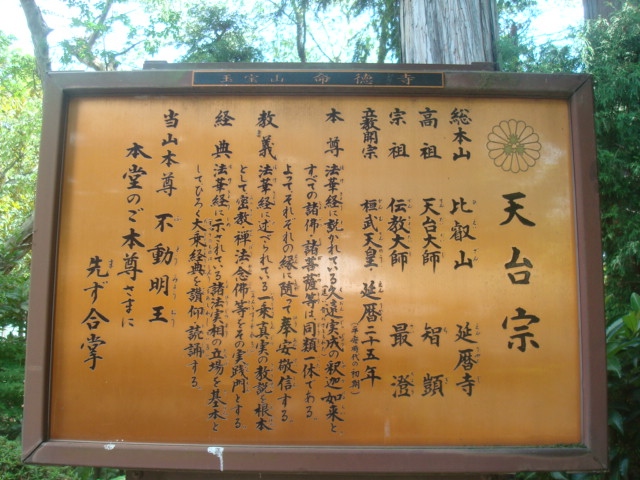 玉宝山 命徳寺
天台宗
総本山 比叡山 延暦寺
高祖 天台大師 智顗
宗祖 伝教大師 最澄
立教開宗 桓武天皇・延暦二十五年
(平安時代の初期)
本尊 法華経に説かれている久遠実成の釈迦如来と
すべての諸佛・諸菩薩等は、同類一体である。
よってそれぞれの縁に随って奉安敬信する。
教義 法華経に述べられている一乗真実の教説を根本
として密教・禅法・念佛等をその実践門とする
経典 法華経に示されている諸法実相の立場を基本と
してひろく大乗経典を讃仰・読誦する。
当山本尊 不動明王
本堂のご本尊さまに
先ず合掌